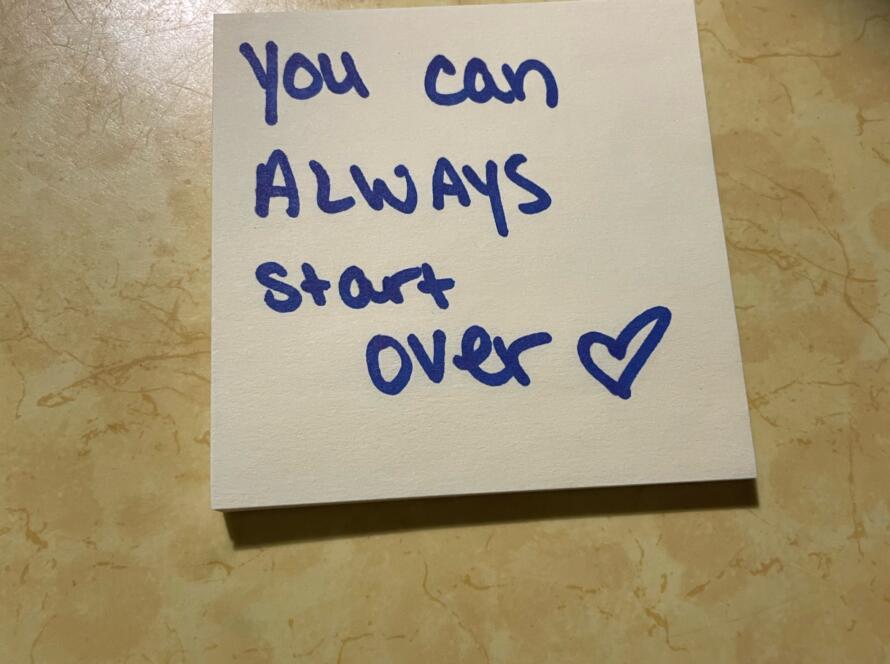 You can
ALWAYS
start
over ♡